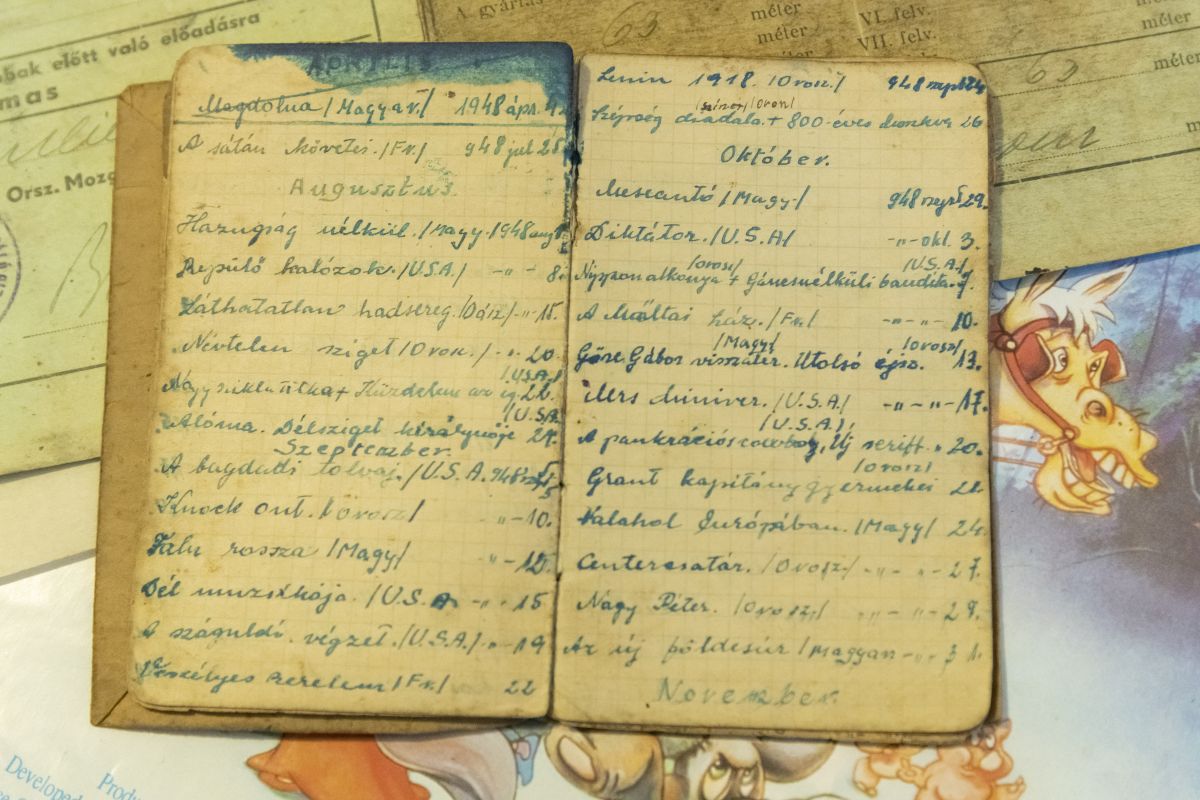 óbak előtt való előadásra
mas
Orsz. Mozg
A gyártás
63
méter
VI. felv.
méter
VII. felv.
méter
63
méter
ÁPRILIS
Magdolna /Magyar/ 1948 ápr.
A sátán követei. /Fr./ 948 jul 28
Augusztus
Hazugság nélkül. /Magy. 1948 aug
Repülő kalózok. /USA./ -„- 8.
Láthatatlan hadsereg. /Dász/ -„- 15.
Névtelen sziget /Orosz./ -„- 20.
/USA/
Küzdelem az 22.
/USA
Alóma. Délsziget királynője 29.
Szeptember.
A bagdadi tolvaj. /U.S.A. 948
5
Knock out. /orosz/ „-10.
Falu rossza /Magy/ „-12.
Dél muzsikája. /U.S.A. -„- 15
A száguldó végzet. /U.S.A./ -„-19
Veszélyes szerelem /Fr./ 22
Lenin 1918. /Orosz./ 948 szept 24
/színes/ /orosz/
Szépség diadala. + 800 éves Moszkva 26
Október.
Meseautó /Magy/ 948 szept 29.
Diktátor. /U.S.A/ -„-okt. 3.
/orosz/ /U.S.A./
Nippon alkonya + bandita.
A Máltai ház. /Fr./ -„-„- 10.
/Magy/ /orosz/
Göre Gábor visszatér. Utolsó éjsz. 13.
Mrs Miniver. /U.S.A/ -„-„-17.
/U.S.A./
A pankrációs cowboy, Új seriff „ 20.
/orosz/
Grant kapitány gyermekei
Valahol Európában. /Magy/ 24.
Centercsatár. /Orosz/ -„- „-27.
Nagy Péter. /Orosz/ -„- „-28.
Az új földesúr /Magyar -„- 31.
November.
Developed
Produ